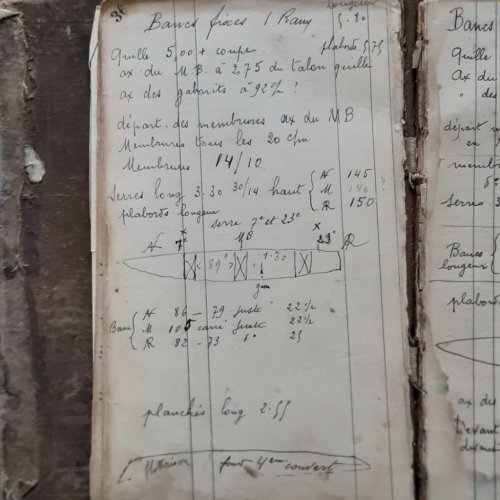 Bancs fixes 1 Rang
longueur
5.80
Quille 5,00 + coupe
plabords 5.75
ax du M.B. à 2,75 du talon quille
ax des gabarits à 92 c/m !
départ des membrures ax du MB
Membrures tous les 20 c/m
Membrures 14/10
Serres long 3.30 30/14 haut { AV 145
M 140
AR 150
plabords longeur
serre 7e et 23e
AV 7e MB 23e AR
89 1.30
Banc { AV 86 – 79 juste 22 1/2
M 105 carré juste 22 1/2
AR 82 – 73 do 25
planches long 2.55
4 cm couvert
Bancs
Quille
Ax du
" des
départ m
en
membr
serres
Bancs {
longeur
plabo
ax des
Devant